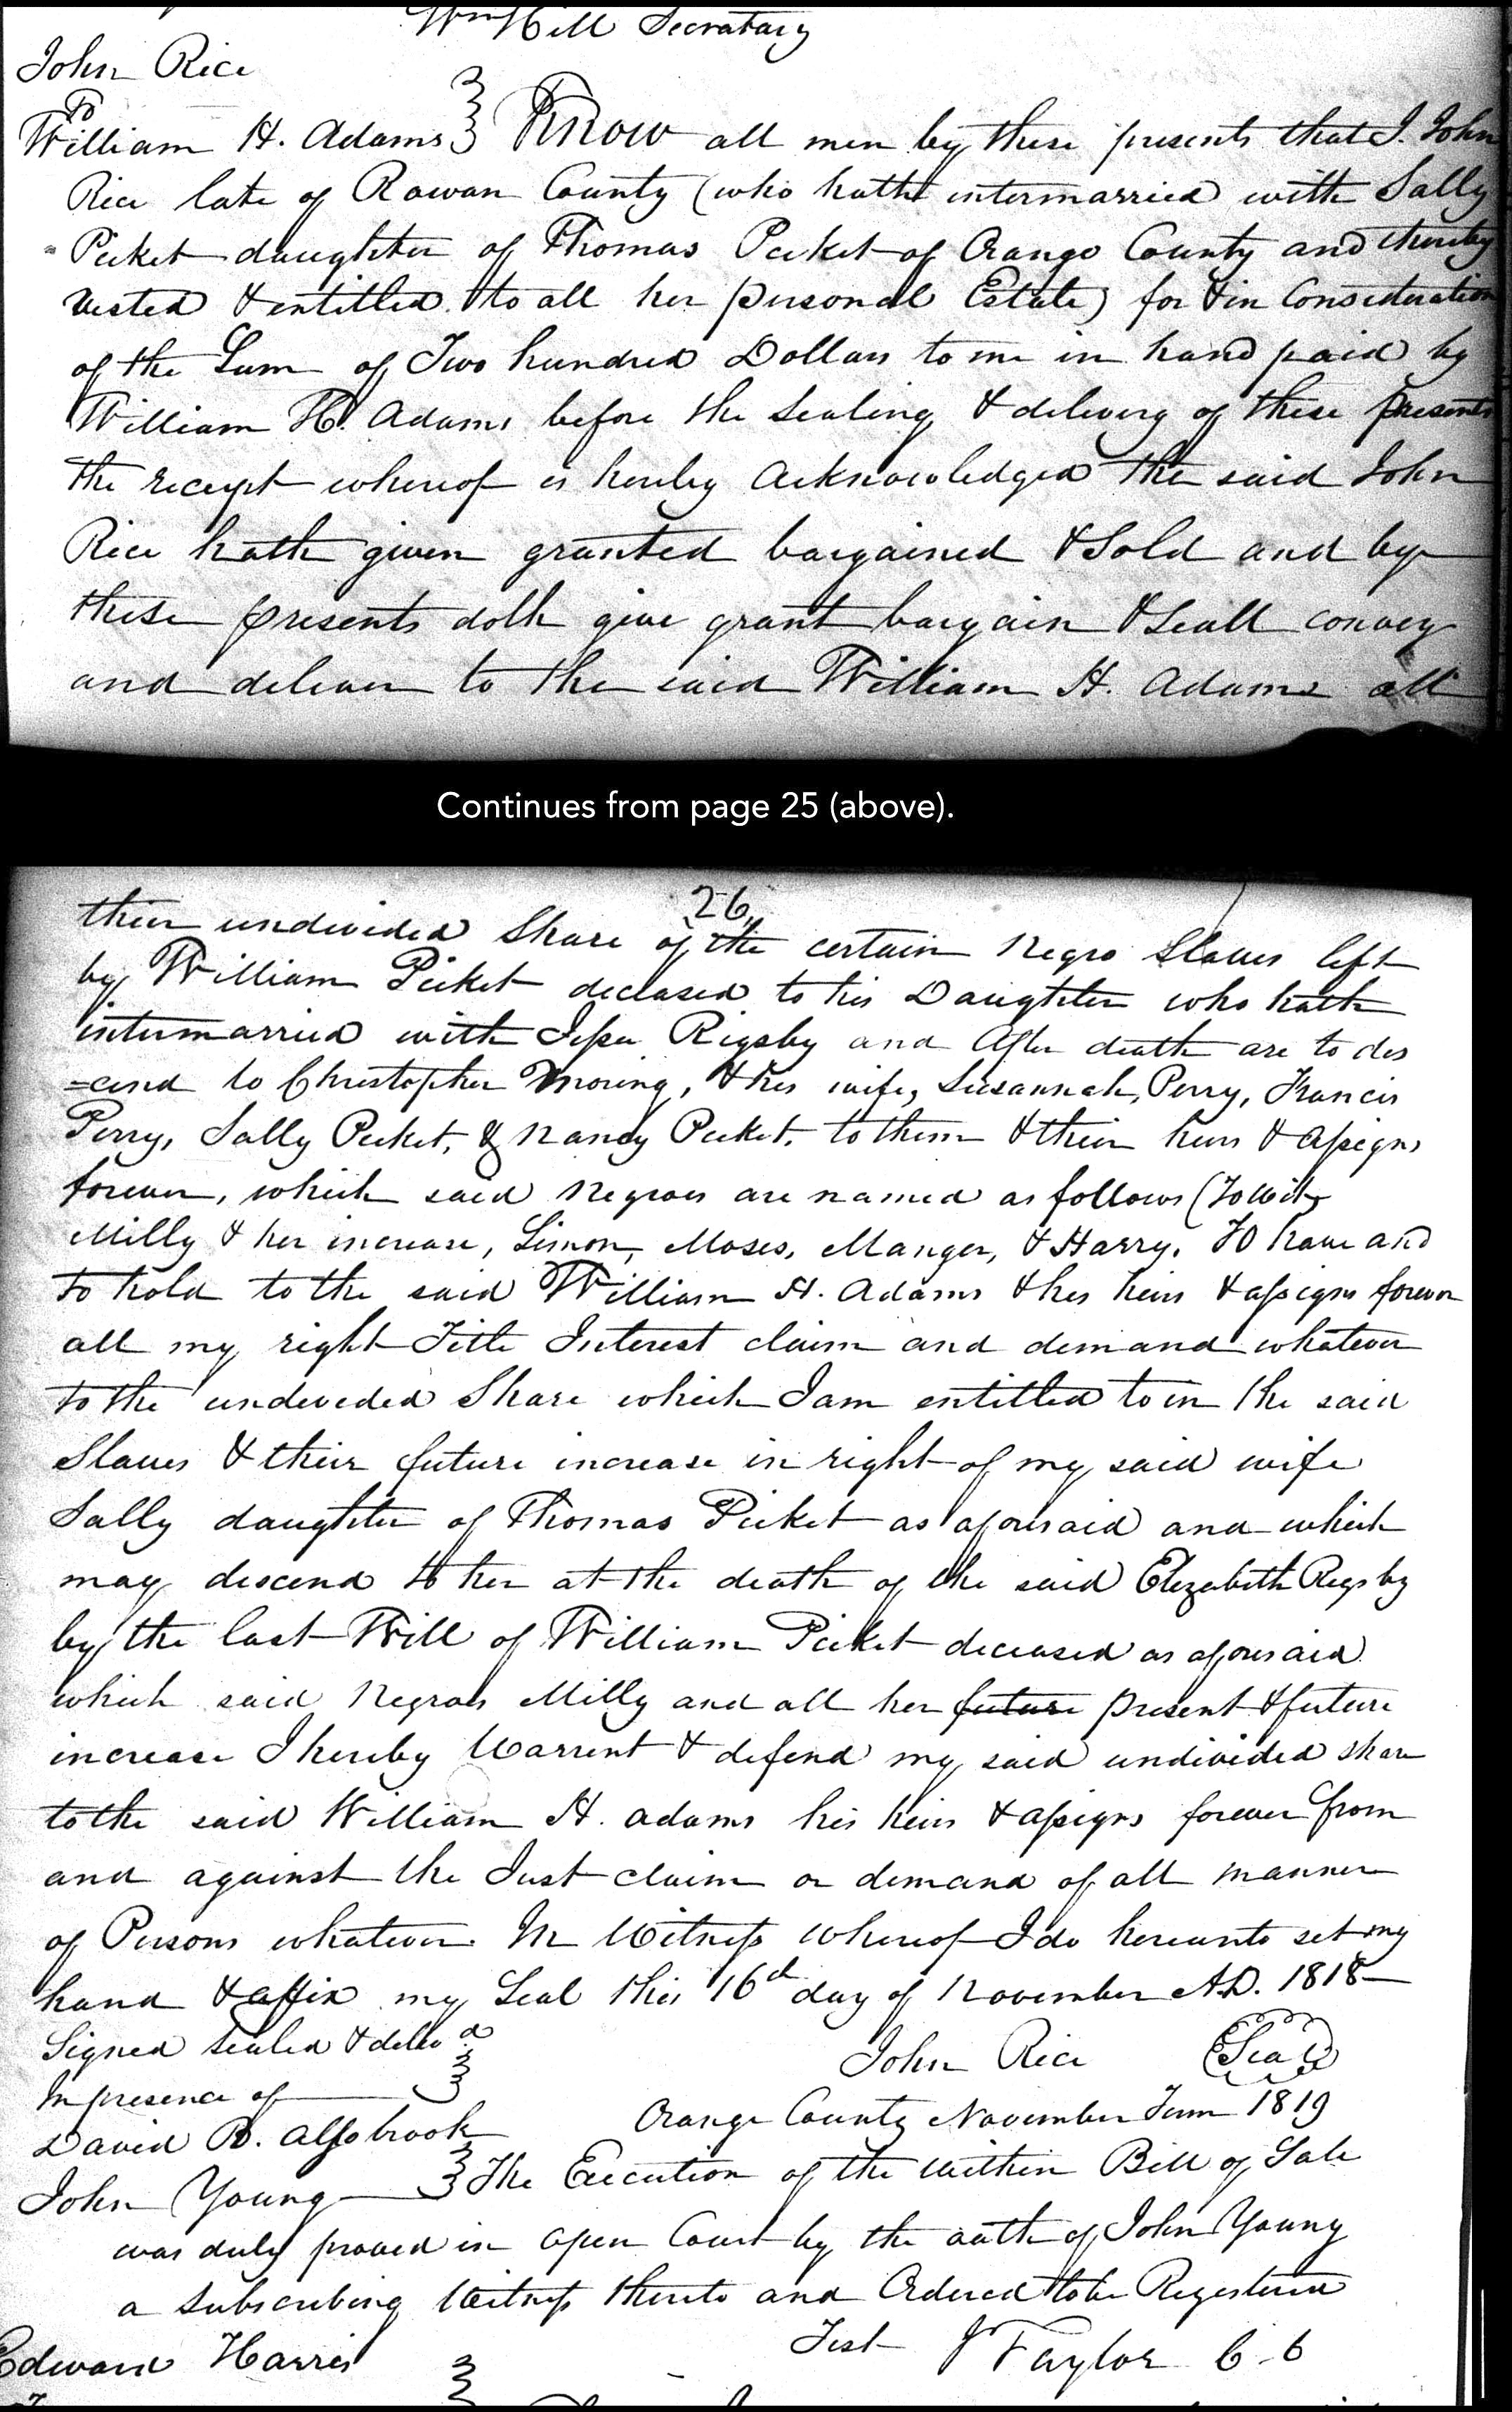 Wm Hill Secratary
John Rice
To
William H. Adams } Know all men by these presents that I. John
Rice late of Rowan County (who hath intermarried with Sally
Picket daughter of Thomas Picket of Orange County and thereby
vested & entitled to all her personal Estate) for & in Consideration
of the Sum of Two hundred Dollars to me in hand paid by
William H. Adams before the Sealing & delivery of these presents
the receipt whereof is hereby Acknowledged the said John
Rice hath given granted bargained & Sold and by
these presents doth give grant bargain & Seall convey
and deliver to the said William H. Adams all
Continues from page 25 (above).
26
their undivided Share of the certain Negro Slaves left
by William Picket deceased to his Daughter who hath
intermarried with Jesse Rigsby and After death are to des
=cend to Christopher Moring, & his wife, Susannah, Perry, Francis
Perry, Sally Picket, & Nancy Picket, to them & their heirs & Assigns
forever, which said Negroes are named as follows (Towit,
Milly & her increase, Simon, Moses, Manger, & Harry. To have and
to hold to the said William H. Adams & his heirs & assigns forever
all my right Title Interest claim and demand whatever
to the undivided Share which I am entitled to in the said
Slaves & their future increase in right of my said wife
Sally daughter of Thomas Picket as aforesaid and which
may descend to her at the death of the said Elizabeth Rigsby
by the last Will of William Picket deceased as aforesaid
which said Negroes Milly and all her future present & future
increase I hereby Warrent & defend my said undivided share
to the said William H. adams his heirs & assigns forever from
and against the Just claim or demand of all manner
of Persons whatever In Witness Whereof I do hereunto set my
hand & affix my Seal this 16th day of November A.D. 1818
Signed sealed & delivd
John Rice (Seal)
In presence of
Orange County November Term 1819
David B. Alsobrook
John Young } The Execution of the within Bill of Sale
was duly proved in open Court by the oath of John Young
a subscribing Witness thereto and Ordered to be Registered
Test J Taylor C.C
Edward Harris